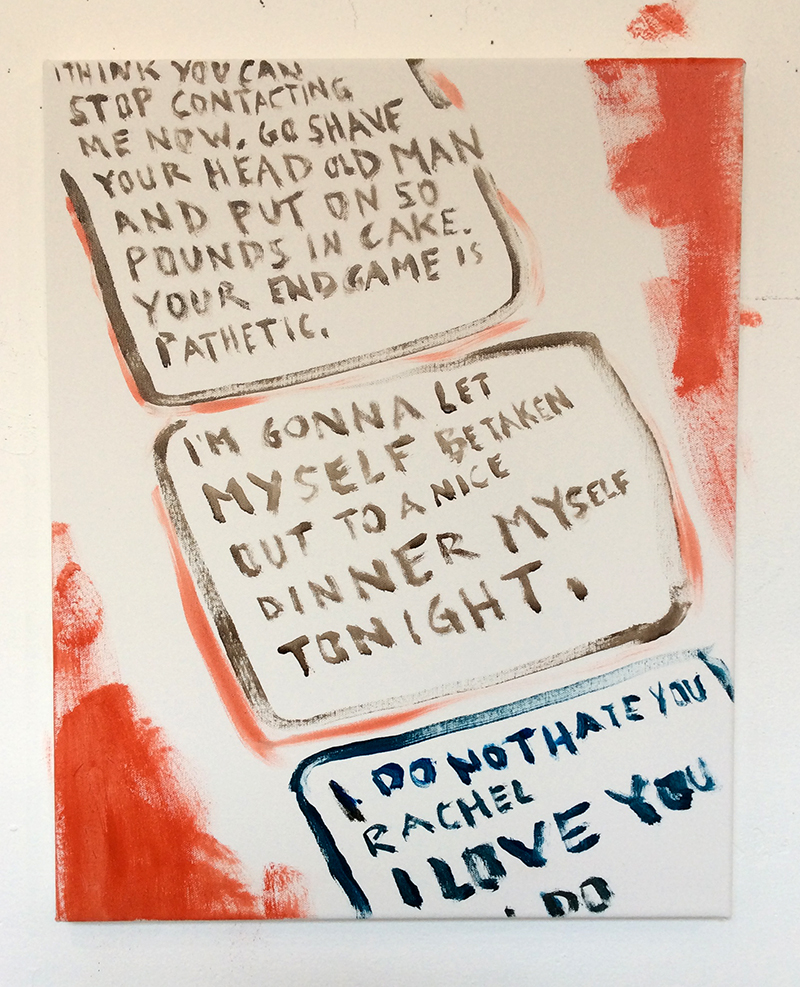 I THINK YOU CAN
STOP CONTACTING
ME NOW. GO SHAVE
YOUR HEAD OLD MAN
AND PUT ON 50
POUNDS IN CAKE.
YOUR ENDGAME IS
PATHETIC.
I'M GONNA LET
MYSELF BE TAKEN
OUT TO A NICE
DINNER MYSELF
TONIGHT.
I DO NOT HATE YOU
RACHEL
I LOVE YOU
. DO